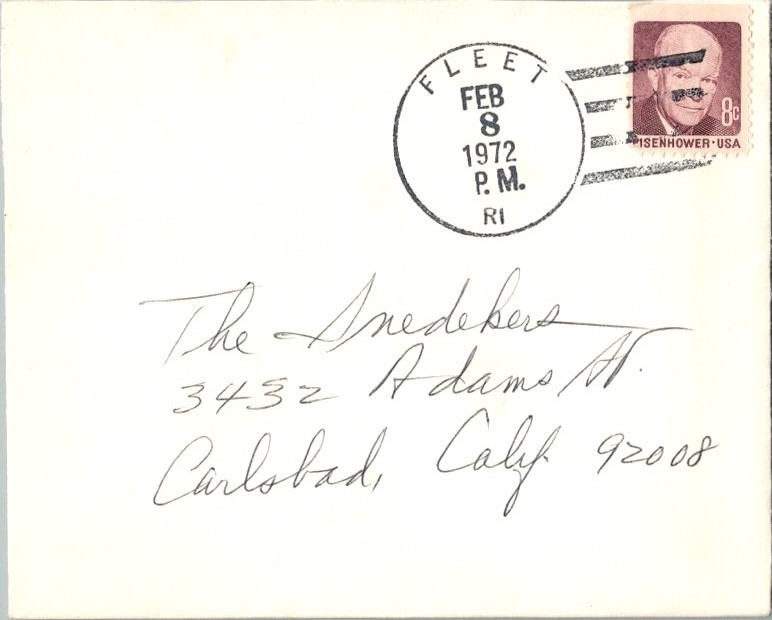 FLEET
FEB
8
1972
P.M.
RI
8c
EISENHOWER·USA
The Snedekers
3432 Adams St.
Carlsbad, Calif. 92008